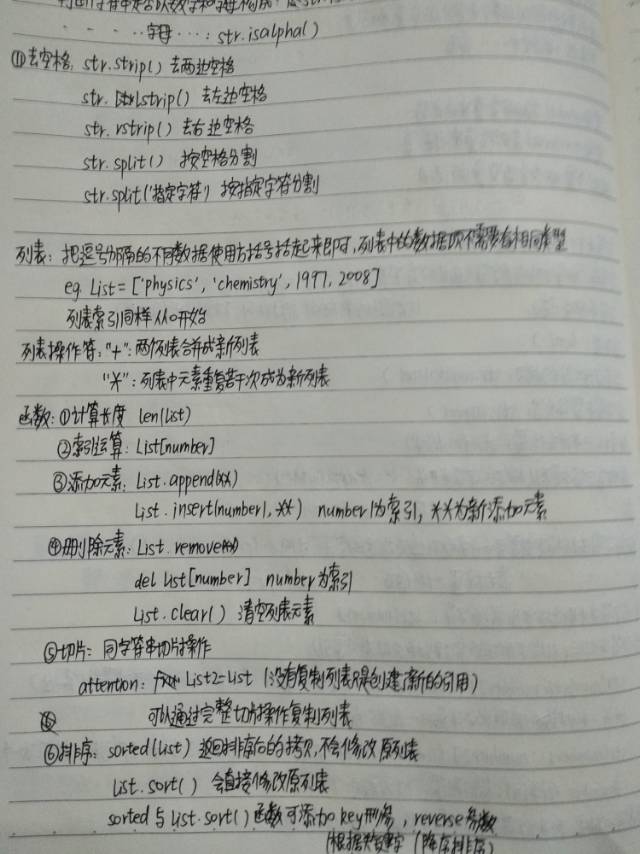 判断字符串是否以数字和字母构成：
字母…：str.isalpha()
①去空格：str.strip() 去两边空格
str.lstrip() 去左边空格
str.rstrip() 去右边空格
str.split() 按空格分割
str.split('指定字符') 按指定字符分割
列表：把逗号分隔的不同数据使用方括号括起来即可，列表中的数据项不需要有相同类型
eg. List = ['physics', 'chemistry', 1997, 2008]
列表索引同样从0开始
列表操作符："+"：两个列表合并成新列表
"*"：列表中元素重复若干次成为新列表
函数：①计算长度 len(list)
②索引运算：List[number]
③添加元素：List.append(**)
List.insert(number1, **) number1为索引，**为新添加元素
④删除元素：List.remove(**)
del list[number] number为索引
List.clear() 清空列表元素
⑤切片：同字符串切片操作
attention: List2=List (没有复制列表只是创建了新的引用)
可以通过完整切片操作复制列表
⑥排序：sorted(list) 返回排序后的拷贝，不会修改原列表
List.sort() 会直接修改原列表
sorted 与 List.sort() 函数可添加key形参，reverse参数
(根据关键字 (降序排序)